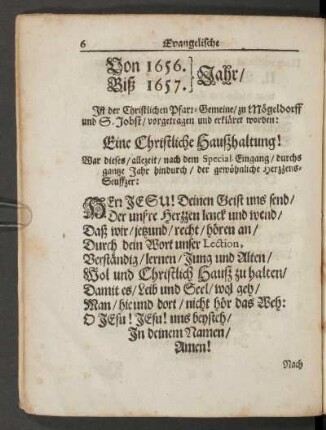 6 Evangelische
Von 1656.
Biß 1657. } Jahr/
Ist der Christlichen Pfarr-Gemeine/ zu Mögeldorff
und S. Jobst/ vorgetragen und erkläret worden:
Eine Christliche Haußhaltung!
War dieses/ allezeit/ nach dem Special-Eingang/ durchs
gantze Jahr hindurch/ der gewöhnliche Hertzens-
Seuffzer:
HErr JESU! Deinen Geist uns send/
Der unsre Hertzen lenck und wend/
Daß wir/ jetzund/ recht/ hören an/
Durch dein Wort unser Lection,
Verständig/ lernen/ Jung und Alten/
Wol und Christlich Hauß zu halten/
Damit es/ Leib und Seel/ wol geh/
Man/ hie und dort/ nicht hör das Weh:
O JEsu! JEsu! uns beysteh/
In deinem Namen/
Amen!
Nach